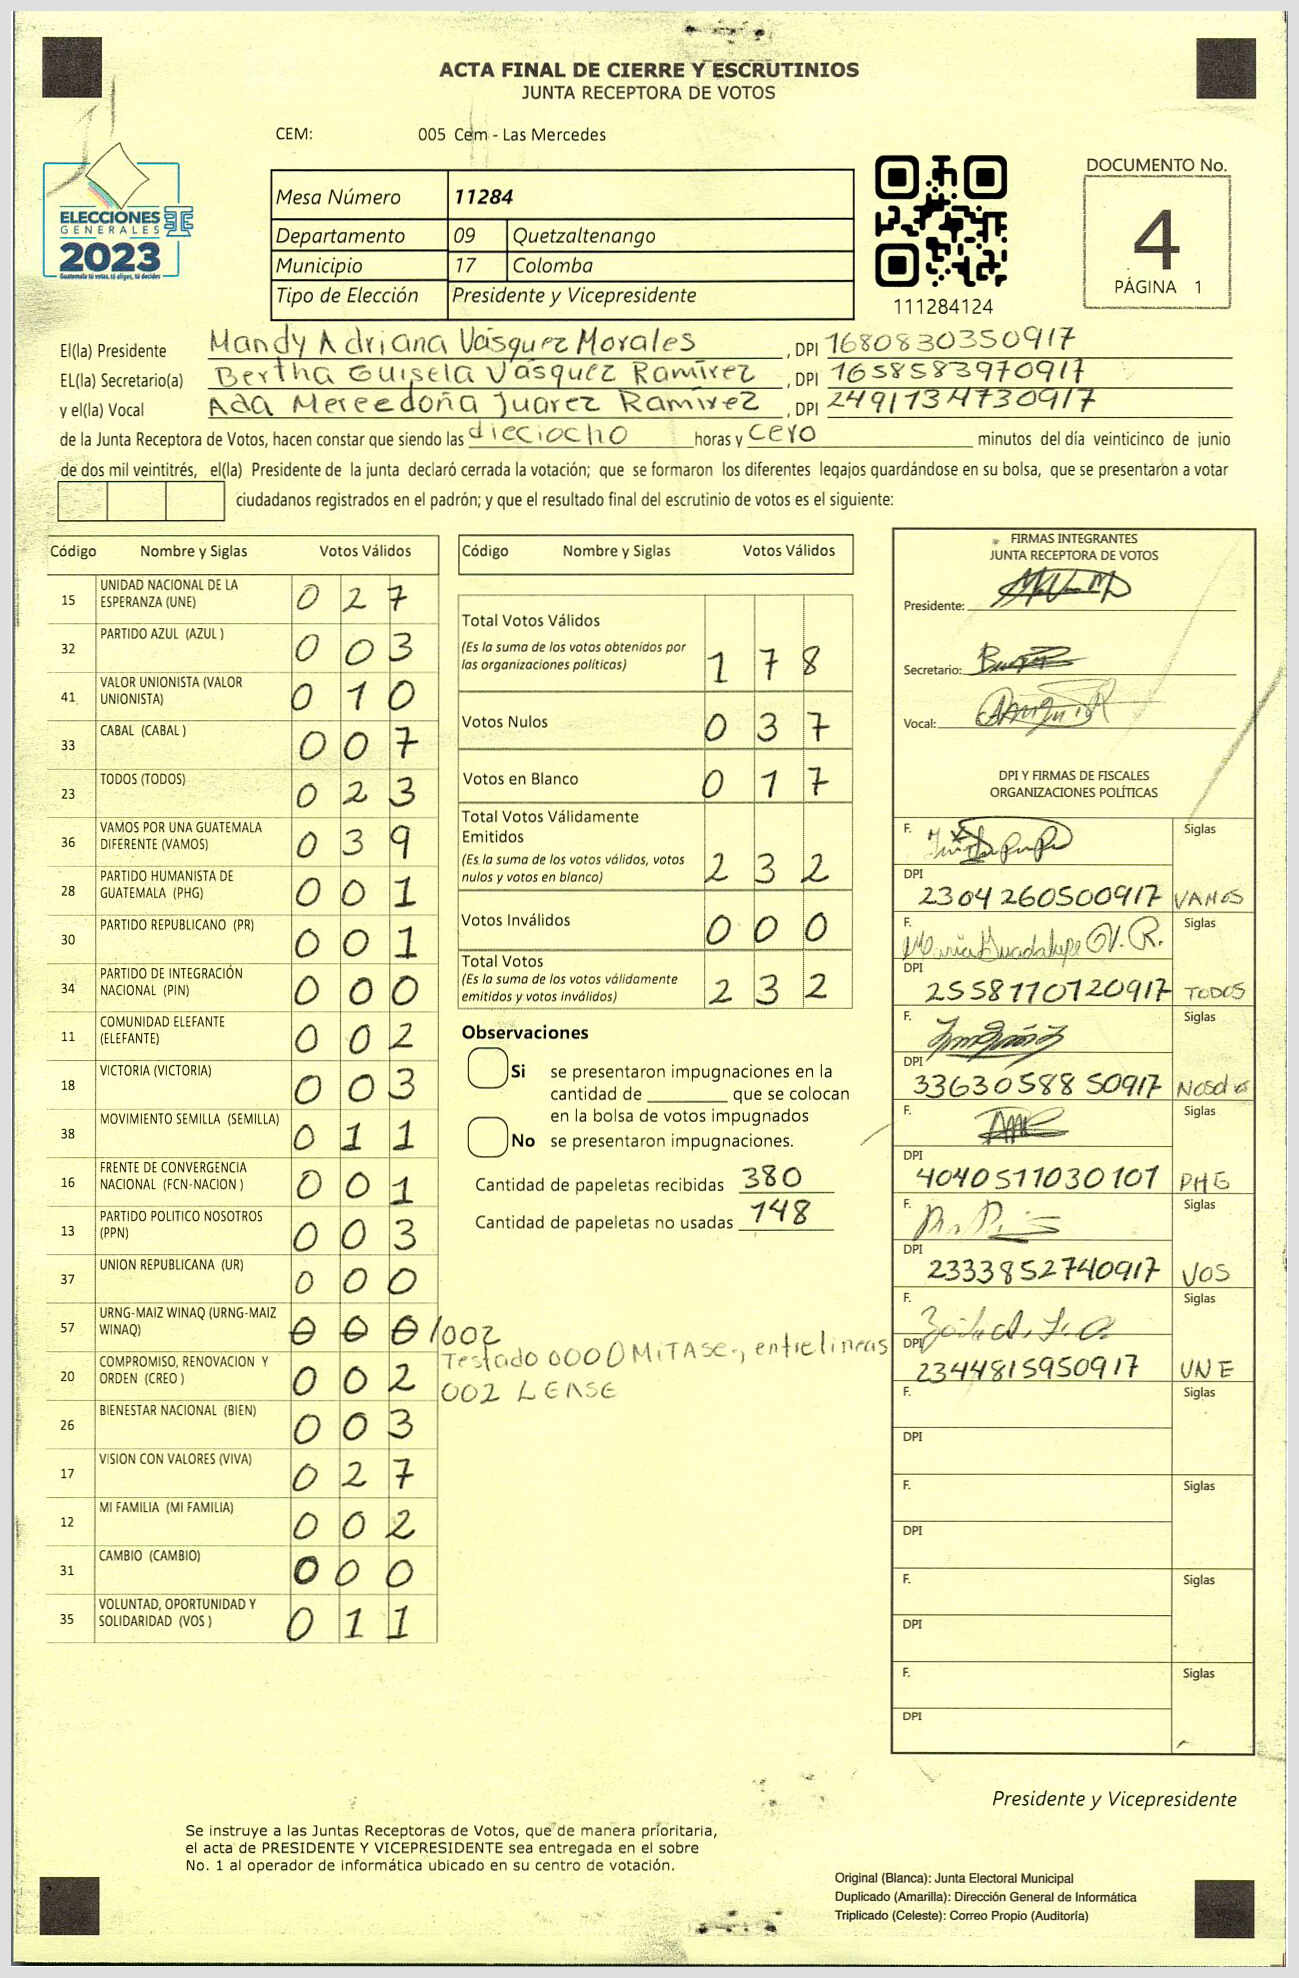 ACTA FINAL DE CIERRE Y ESCRUTINIOS
JUNTA RECEPTORA DE VOTOS
CEM: 005 Cem - Las Mercedes
ELECCIONES
GENERALES
2023
Guatemala tú votas, tú eliges, tú decides
Mesa Número 11284
Departamento 09 Quetzaltenango
Municipio 17 Colomba
Tipo de Elección Presidente y Vicepresidente
111284124
DOCUMENTO No.
4
PÁGINA 1
El(la) Presidente Mandy Adriana Vásquez Morales , DPI 1680830350917
EL(la) Secretario(a) Bertha Guisela Vásquez Ramírez , DPI 1658583970917
y el(la) Vocal Ada Mercedoña Juarez Ramirez , DPI 2491734730917
de la Junta Receptora de Votos, hacen constar que siendo las dieciocho horas y cero minutos del día veinticinco de junio
de dos mil veintitrés, el(la) Presidente de la junta declaró cerrada la votación; que se formaron los diferentes legajos guardándose en su bolsa, que se presentaron a votar
ciudadanos registrados en el padrón; y que el resultado final del escrutinio de votos es el siguiente:
Código Nombre y Siglas Votos Válidos
15 UNIDAD NACIONAL DE LA ESPERANZA (UNE) 0 2 7
32 PARTIDO AZUL (AZUL ) 0 0 3
41 VALOR UNIONISTA (VALOR UNIONISTA) 0 1 0
33 CABAL (CABAL ) 0 0 7
23 TODOS (TODOS) 0 2 3
36 VAMOS POR UNA GUATEMALA DIFERENTE (VAMOS) 0 3 9
28 PARTIDO HUMANISTA DE GUATEMALA (PHG) 0 0 1
30 PARTIDO REPUBLICANO (PR) 0 0 1
34 PARTIDO DE INTEGRACIÓN NACIONAL (PIN) 0 0 0
11 COMUNIDAD ELEFANTE (ELEFANTE) 0 0 2
18 VICTORIA (VICTORIA) 0 0 3
38 MOVIMIENTO SEMILLA (SEMILLA) 0 1 1
16 FRENTE DE CONVERGENCIA NACIONAL (FCN-NACION ) 0 0 1
13 PARTIDO POLITICO NOSOTROS (PPN) 0 0 3
37 UNION REPUBLICANA (UR) 0 0 0
57 URNG-MAIZ WINAQ (URNG-MAIZ WINAQ) 0 0 0 /002
20 COMPROMISO, RENOVACION Y ORDEN (CREO ) 0 0 2
26 BIENESTAR NACIONAL (BIEN) 0 0 3
17 VISION CON VALORES (VIVA) 0 2 7
12 MI FAMILIA (MI FAMILIA) 0 0 2
31 CAMBIO (CAMBIO) 0 0 0
35 VOLUNTAD, OPORTUNIDAD Y SOLIDARIDAD (VOS ) 0 1 1
Testado 000 OMITASE-, entrelineas
002 LEASE
Código Nombre y Siglas Votos Válidos
Total Votos Válidos
(Es la suma de los votos obtenidos por las organizaciones políticas) 1 7 8
Votos Nulos 0 3 7
Votos en Blanco 0 1 7
Total Votos Válidamente Emitidos
(Es la suma de los votos válidos, votos nulos y votos en blanco) 2 3 2
Votos Inválidos 0 0 0
Total Votos
(Es la suma de los votos válidamente emitidos y votos inválidos) 2 3 2
Observaciones
Si se presentaron impugnaciones en la
cantidad de ________ que se colocan
en la bolsa de votos impugnados
No se presentaron impugnaciones.
Cantidad de papeletas recibidas 380
Cantidad de papeletas no usadas 148
FIRMAS INTEGRANTES
JUNTA RECEPTORA DE VOTOS
Presidente:
Secretario:
Vocal:
DPI Y FIRMAS DE FISCALES
ORGANIZACIONES POLÍTICAS
F. Siglas
DPI 2304260500917 VAMOS
F. María Guadalupe V. R. Siglas
DPI 2558110720917 TODOS
F. Siglas
DPI 3363058850917
F. Siglas
DPI 4040511030101 PHG
F. Siglas
DPI 2333852740917 VOS
F. Siglas
DPI 2344815950917 UNE
F. Siglas
DPI
F. Siglas
DPI
F. Siglas
DPI
F. Siglas
DPI
Presidente y Vicepresidente
Se instruye a las Juntas Receptoras de Votos, que de manera prioritaria,
el acta de PRESIDENTE Y VICEPRESIDENTE sea entregada en el sobre
No. 1 al operador de informática ubicado en su centro de votación.
Original (Blanca): Junta Electoral Municipal
Duplicado (Amarilla): Dirección General de Informática
Triplicado (Celeste): Correo Propio (Auditoría)